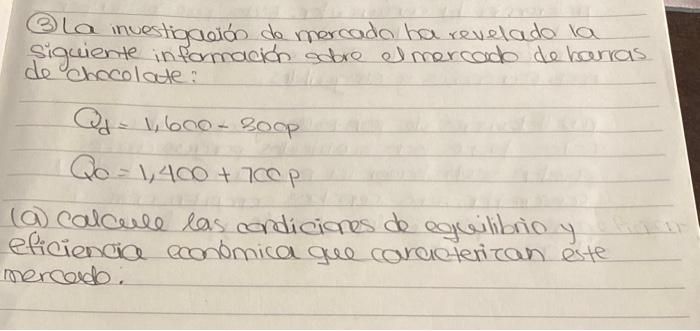 ③ La investigación de mercado ha revelado la
siguiente información sobre el mercado de barras
de chocolate:
Qd = 1,600 - 300p
Qo = 1,400 + 700p
(a) calcule las condiciones de equilibrio y
eficiencia económica que caracterizan este
mercado.